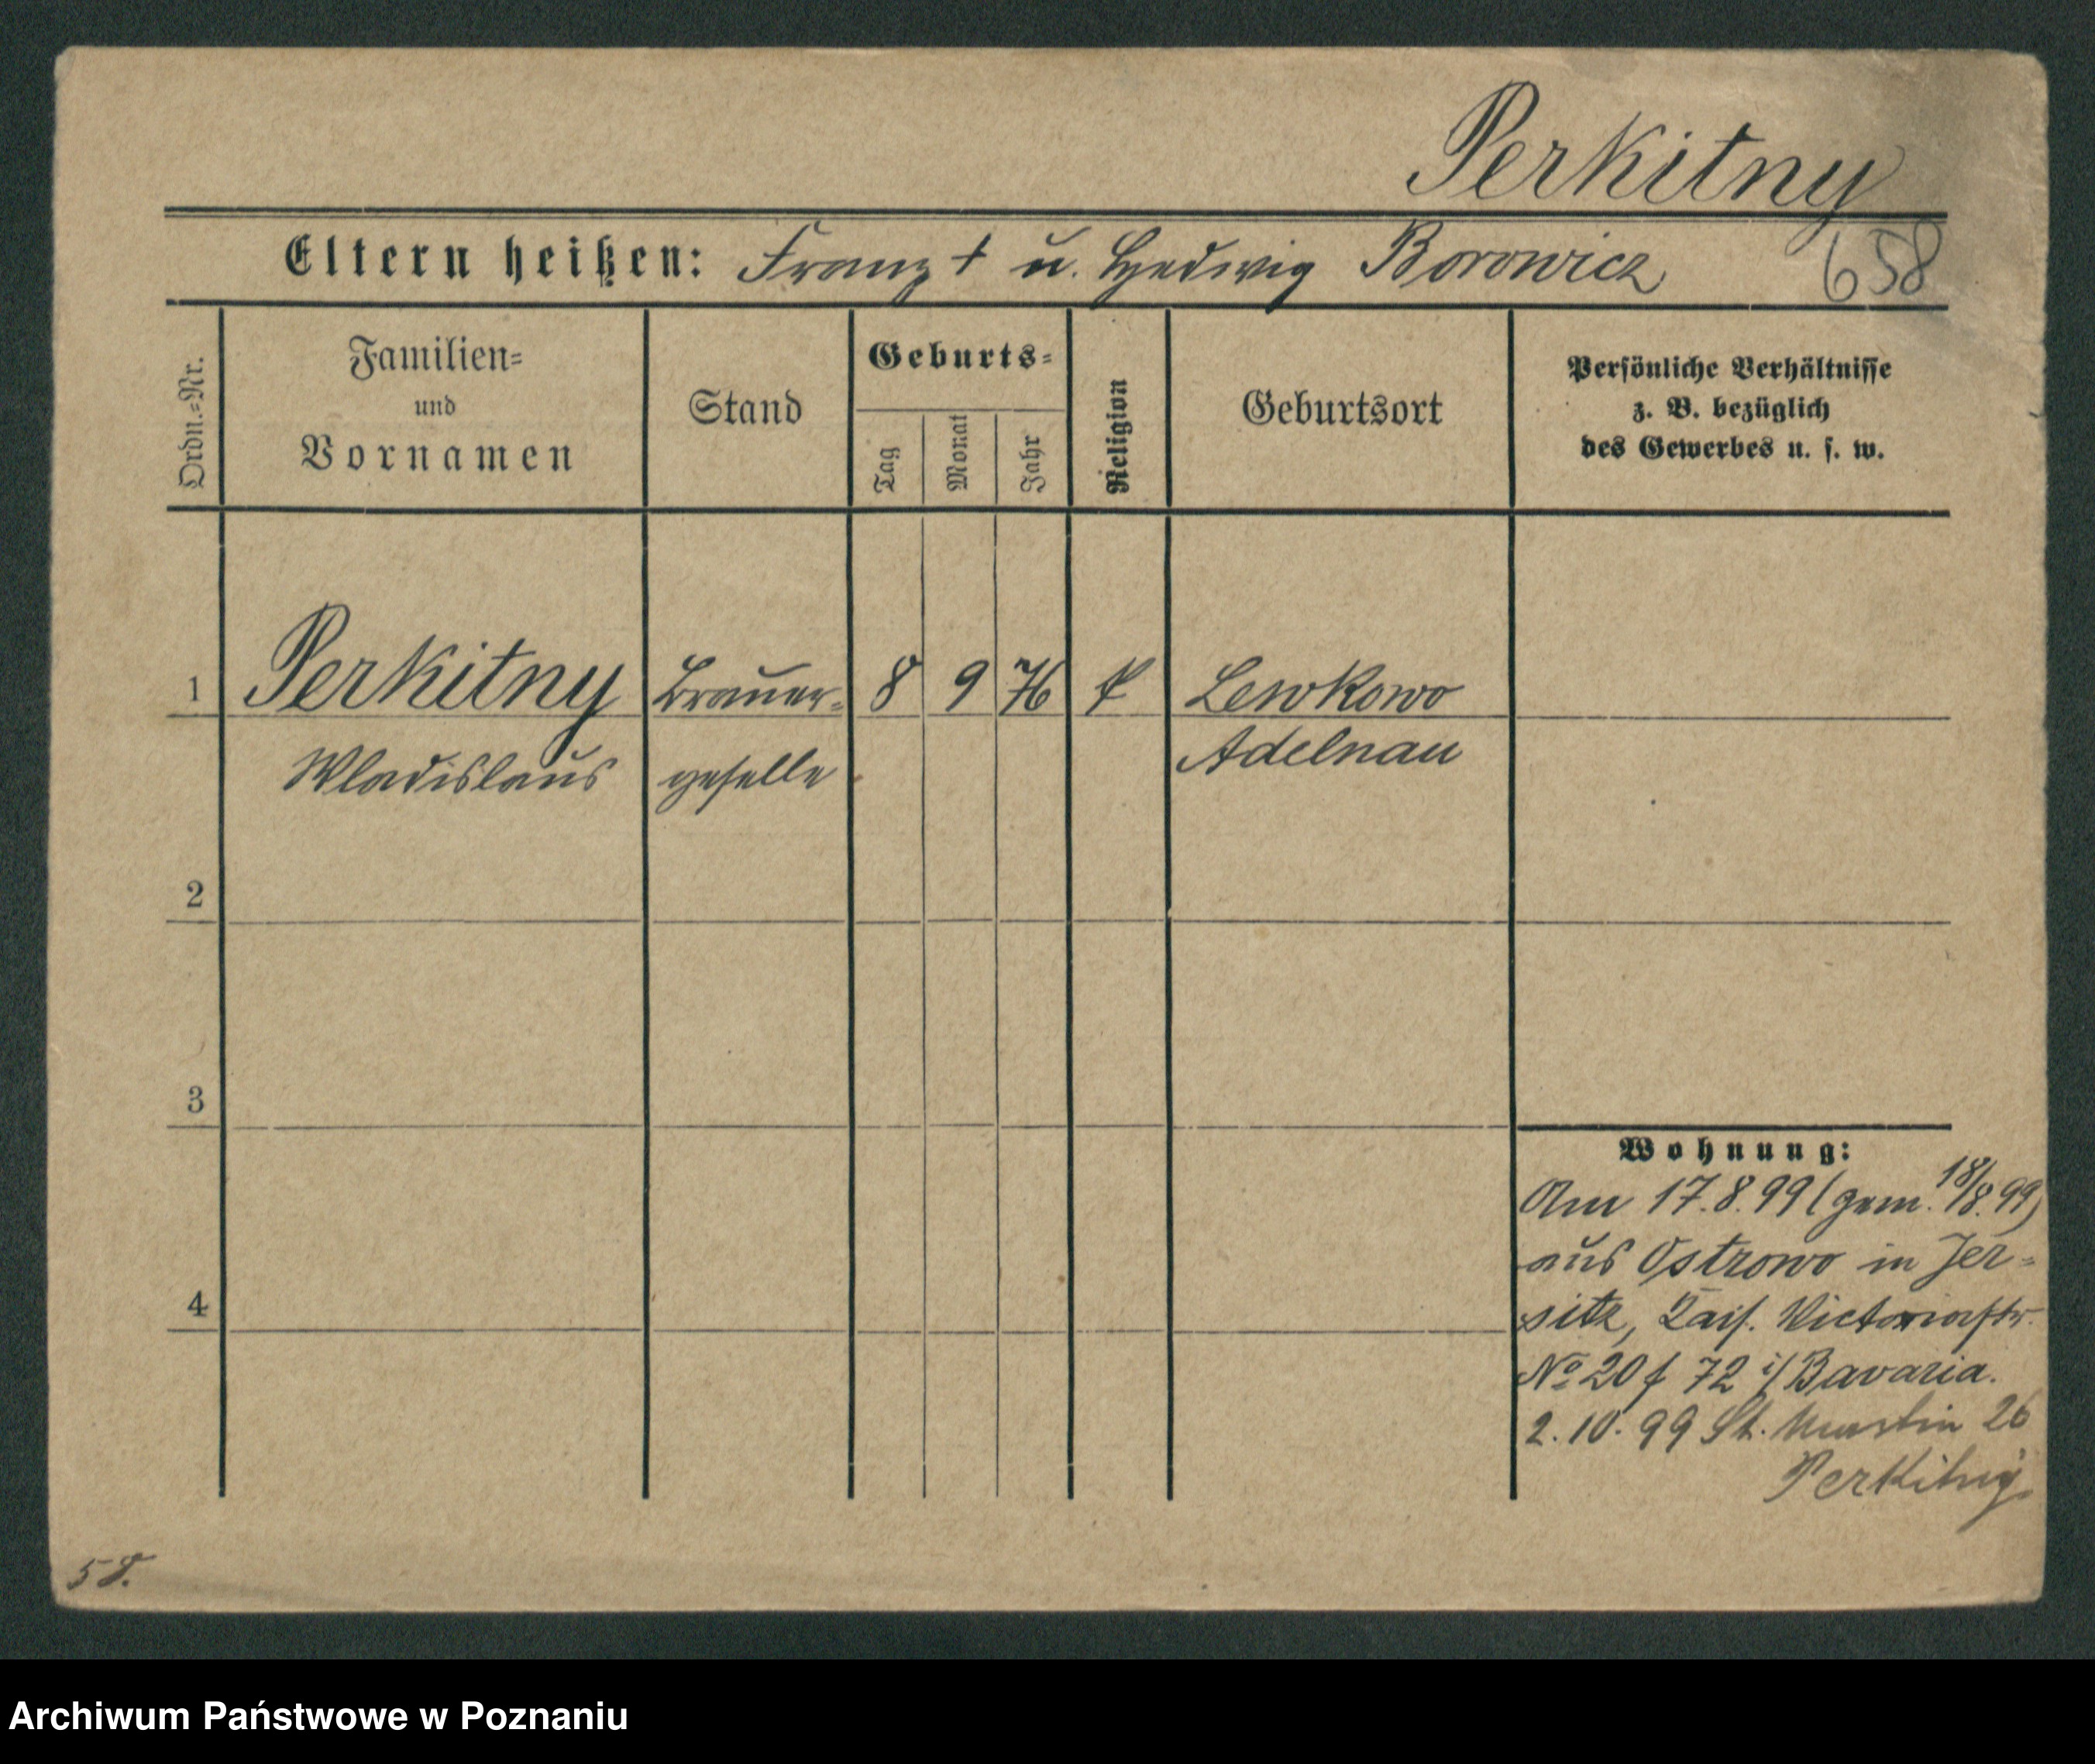 Perkitny
Eltern heißen: Franz † u. Hedwig Borowicz 658
Ordn.=Nr.
Familien=
und
Vornamen
Stand
Geburts=
Tag
Monat
Jahr
Religion
Geburtsort
Persönliche Verhältnisse
z. B. bezüglich
des Gewerbes u. s. w.
1 Perkitny Brauer= 8 9 76 k Lewkowo
Wladislaus geselle Adelnau
2
3
4
Wohnung:
Am 17.8.99 (gem. 18/8.99)
aus Ostrowo in Jer=
sitz, Kais. Victoriastr.
No 20 f 72 i/ Bavaria.
2.10.99 St. Martin 26
Perkitny
58.
Archiwum Państwowe w Poznaniu